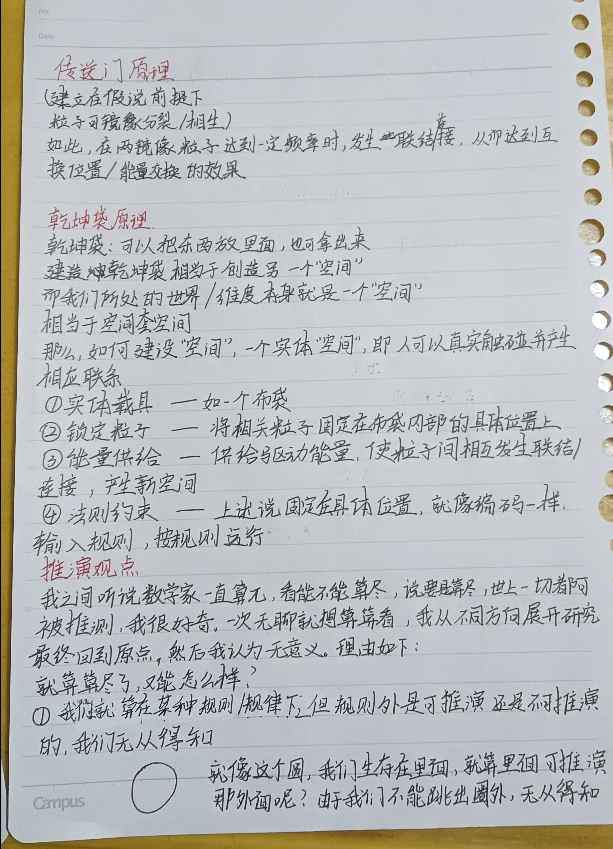 No.
Date
传送门原理
(建立在假说前提下
粒子可镜像分裂/相生)
如此,在两镜像粒子达到一定频率时,发生联结/连接,从而达到互
换位置/能量交换的效果
乾坤袋原理
乾坤袋:可以把东西放里面,也可拿出来
建造乾坤袋相当于创造另一个“空间”
而我们所处的世界/维度本身就是一个“空间”
相当于空间套空间
那么,如何建设“空间”,一个实体“空间”,即人可以真实触碰并产生
相应联系
①实体载具 — 如一个布袋
②锁定粒子 — 将相关粒子固定在布袋内部的具体位置上
③能量供给 — 供给驱动能量,使粒子间相互发生联结/
连接,产生新空间
④法则约束 — 上述说固定在具体位置,就像编码一样.
输入规则,按规则运行
推演观点
我之间听说数学家一直算π,看能不能算尽,说要是算尽,世上一切都可
被推测,我很好奇。一次无聊就想算算看,我从不同方向展开研究
最终回到原点,然后我认为无意义。理由如下:
就算算尽了,又能怎么样?
①我们就算在某种规则/规律下,但规则外是可推演还是不可推演
的,我们无从得知
就像这个圆,我们生存在里面,就算里面可推演
那外面呢?由于我们不能跳出圈外,无从得知
Campus